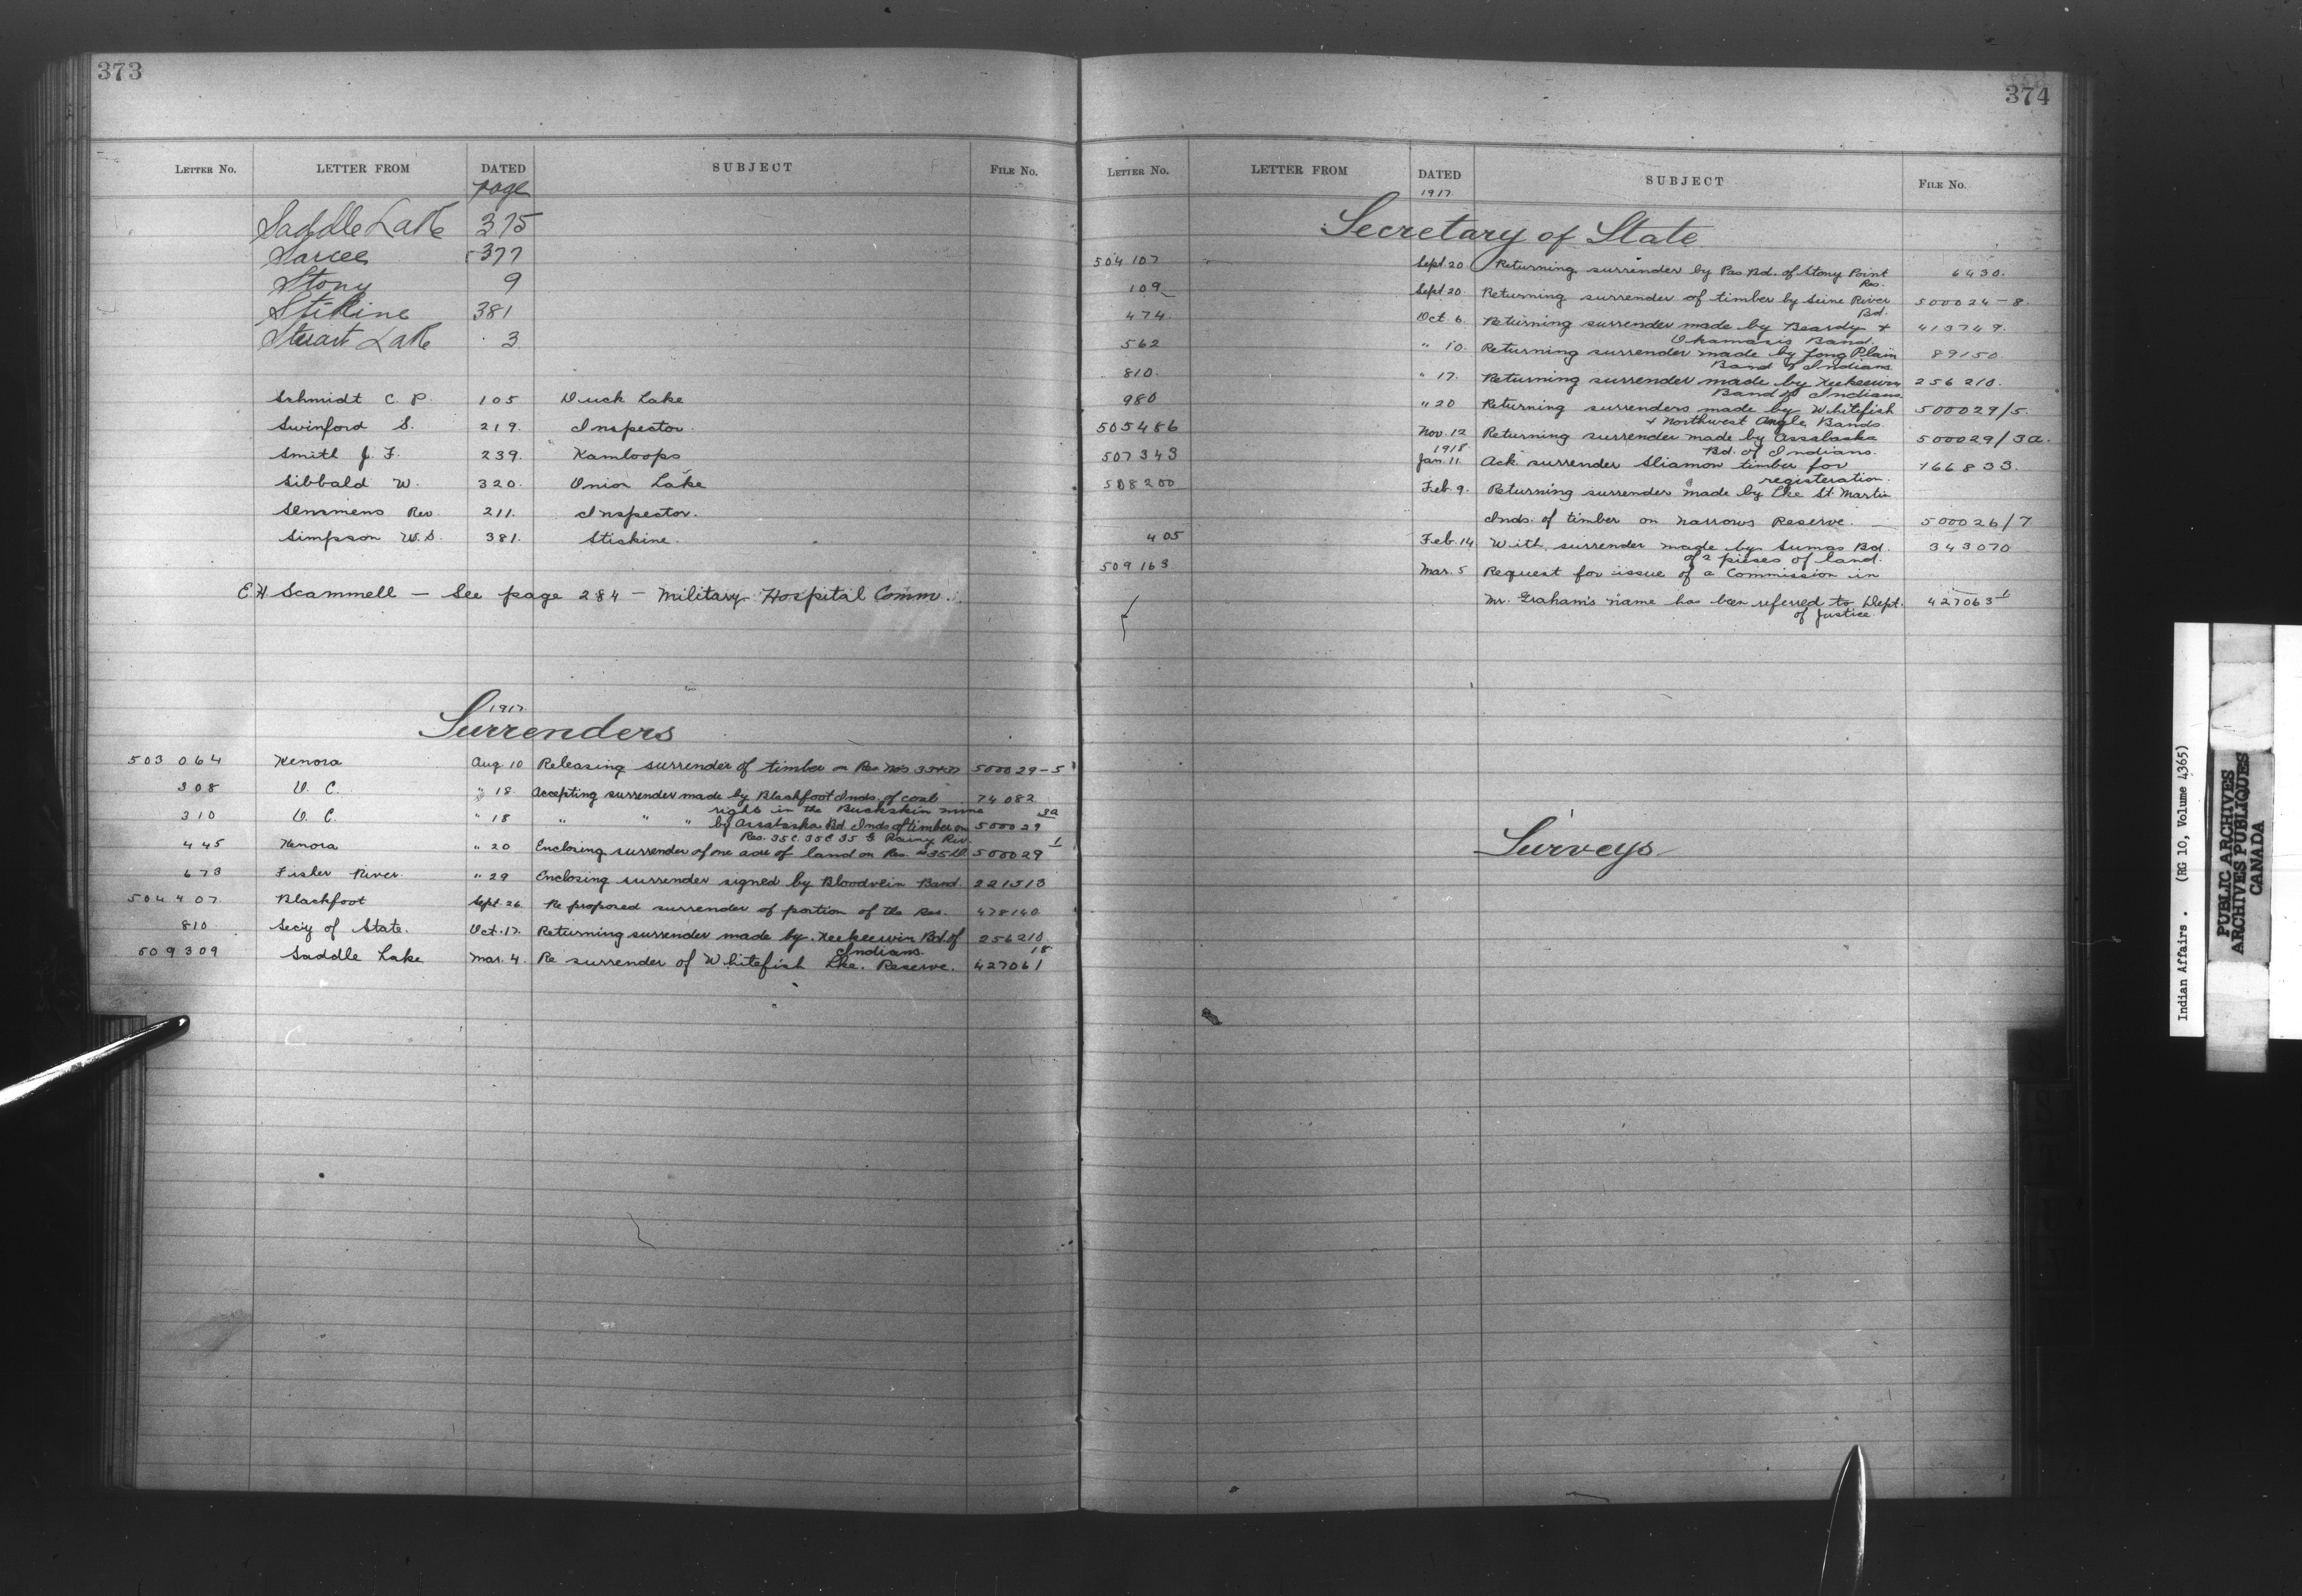 373
LETTER No. LETTER FROM DATED SUBJECT FILE No.
page
Saddle Lake 375
Sarcee 377
Stony 9
Stikine 381
Stuart Lake 3
Schmidt C P. 105 Duck Lake
Swinford S. 219. Inspector.
Smith J. F. 239. Kamloops
Sibbald W. 320. Onion Lake
Semmens Rev 211. Inspector.
Simpson W.S. 381. Stickine.
E H Scammell — See page 284 — Military Hospital Comm.
1917
Surrenders
503064 Kenora Aug 10 Releasing surrender of timber on Res Nos 500029-5
308 O. C. " 18. Accepting surrender made by Blackfoot Inds. of coal 74082
right in the Buckskin mine
310 O. C. " 18 " " " by Assabaska Bd Inds of timber on 500029 3a
Res. 35C 35E 35 G Rainy Riv.
445 Kenora " 20 Enclosing surrender of one acre of land on Res. 35 500029 1
673 Fisher River. " 29 Enclosing surrender signed by Bloodvein Band. 221513
504407 Blackfoot Sept 26 Re proposed surrender of portion of the Res. 478140
810 Sec'y of State. Oct. 17. Returning surrender made by Keekeewin Bd. of 256210
Indians.
509309 Saddle Lake Mar. 4. Re surrender of Whitefish Lke. Reserve. 427061 18
374
LETTER No. LETTER FROM DATED SUBJECT FILE No.
1917
Secretary of State
504107 Sept. 20 Returning surrender by Pas Bd. of Stony Point 6430.
Res.
109 Sept. 20 Returning surrender of timber by Seine River 500024-8
Bd.
474 Oct. 6. Returning surrender made by Beardy & 413749.
Okamasis Band.
562 " 10. Returning surrender made by Long Plain 89150
Band of Indians
810. " 17. Returning surrender made by Keekeewin 256210.
Band of Indians
980 " 20 Returning surrenders made by Whitefish 500029/5.
& Northwest Angle Bands.
505486 Nov. 12 Returning surrender made by Assabaska 500029/3a.
Bd. of Indians.
1918
507343 Jan. 11. Ack. surrender Sliamon timber for 166833.
registeration.
508200 Feb 9. Returning surrender made by Lke St. Martin
Inds. of timber on narrows Reserve. — 500026/7
405 Feb. 14 With surrender made by Sumas Bd. 343070
of 2 pieses of land.
509163 Mar. 5 Request for issue of a Commission in
Mr. Graham's name has been referred to Dept. 427063 1
of Justice.
Surveys
Indian Affairs. (RG 10, Volume 4365)
PUBLIC ARCHIVES
ARCHIVES PUBLIQUES
CANADA